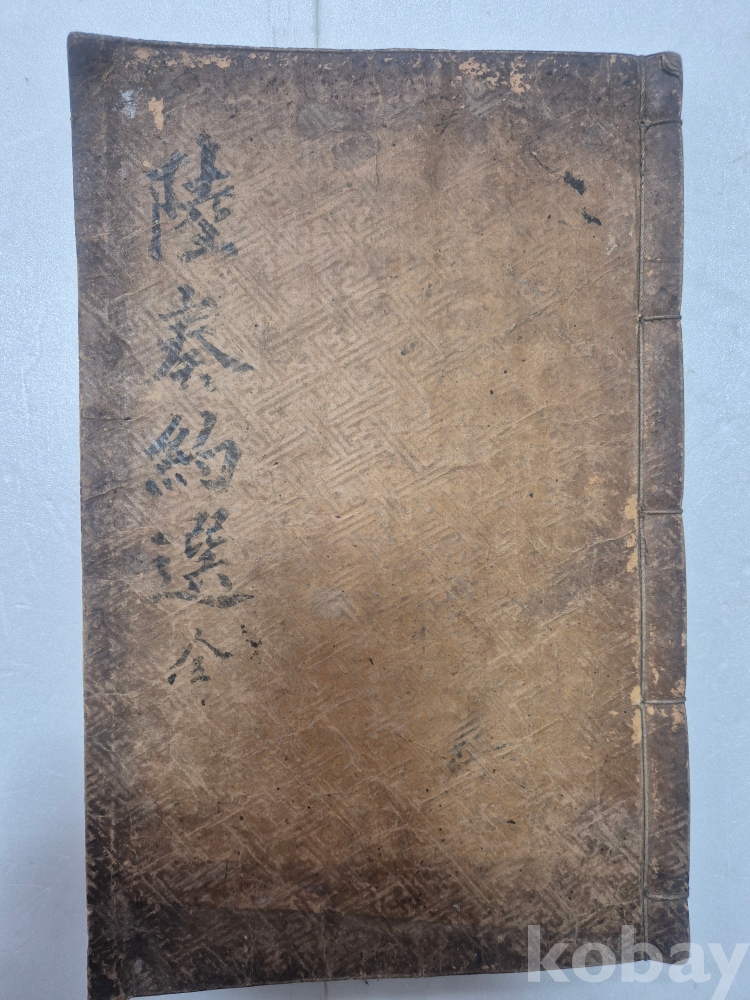 陸奏約選 全
kobay